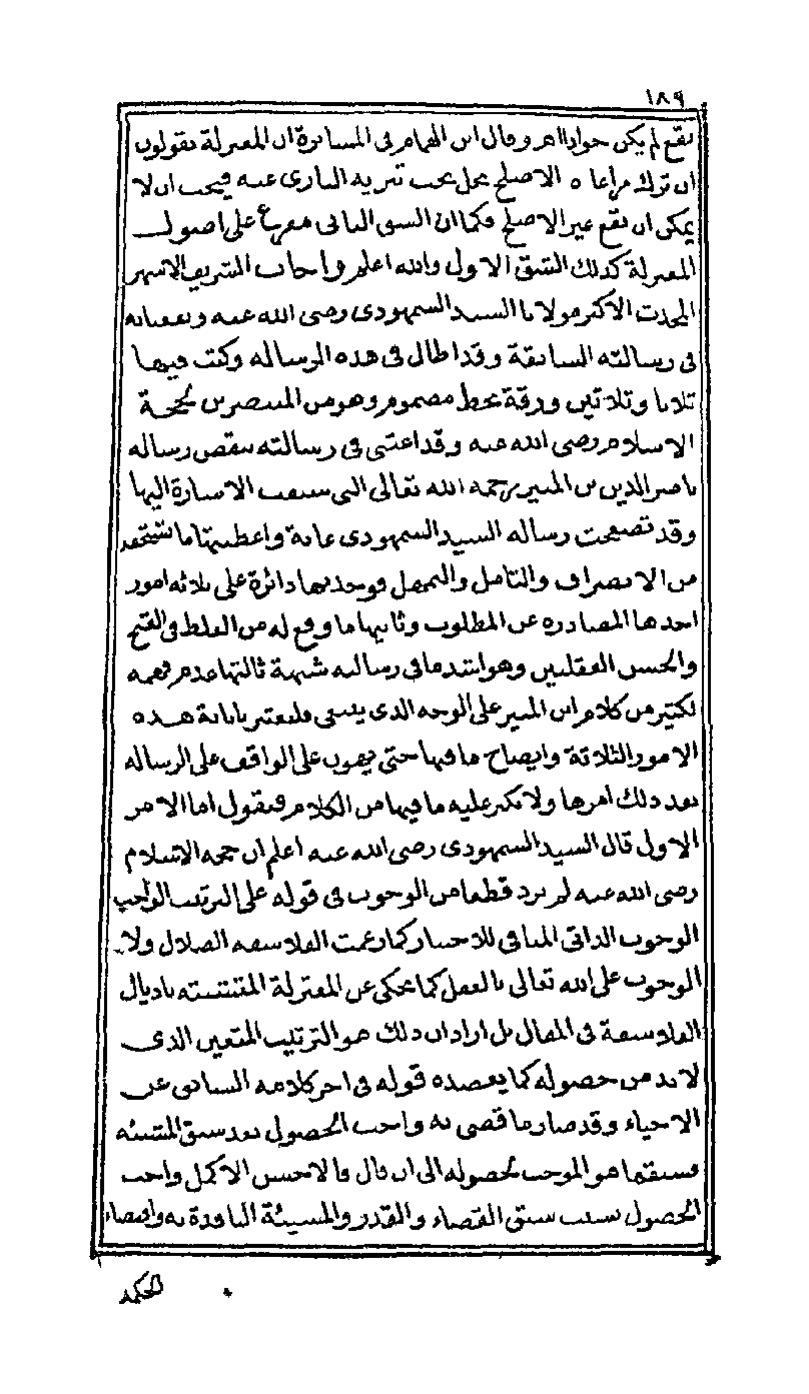 ١٨٩
يقع لم يكن جوادا اهر وقال ابن الهمام في المسايرة ان المعتزلة يقولون
ان ترك مراعاة الاصلح بخل يجب تنزيه الباري عنه فيجب ان لا
يمكن ان يقع غير الاصلح فكما ان الشق الثاني مفرع على اصول
المعتزلة كذلك الشق الاول والله اعلم واجاب الشريف الاشهر
المحدث الاكثر مولانا السيد السمهودي رضى الله عنه ونفعنا به
في رسالته السابقة وقد اطال في هذه الرساله وكتب فيها
ثلاثا وثلاثين ورقة بخط مضموم وهو من المنتصرين لحجة
الاسلام رضى الله عنه وقد اعتنى في رسالته بنقض رساله
ناصر الدين بن المنير رحمه الله تعالى التي سبقت الاشارة اليها
وقد تصفحت رساله السيد السمهودي غاية واعطيتها ما تستحقه
من الانصراف والتامل والتمهل فوجدتها دائرة على ثلاثه امور
احدها المصادره عن المطلوب وثانيها ما وقع له من الغلط في القبح
والحسن العقليين وهو اشد ما في رسالته شبهة ثالثها عدم فهمه
لكثير من كلام ابن المنير على الوجه الذي ينبغي فلنعتن بابانة هذه
الامور الثلاثة وايضاح ما فيها حتى يهون على الواقف على الرساله
بعد ذلك امرها ولا يكبر عليه ما فيها من الكلام فنقول اما الامر
الاول قال السيد السمهودي رضى الله عنه اعلم ان حجه الاسلام
رضى الله عنه لم يرد قطعا من الوجوب في قوله على الترتيب الواجب
الوجوب الذاتي المنافي للاختيار كما زعمت الفلاسفه الضلال ولا
الوجوب على الله تعالى بالعقل كما يحكى عن المعتزلة المتشبثه باذيال
الفلاسفة في المقال بل اراد ان ذلك هو الترتيب المتعين الذي
لا بد من حصوله كما يعضده قوله في اخر كلامه السابق عن
الاحياء وقد صار ما قضى به واجب الحصول بعد سبق المشيئه
فسبقها هو الموجب لحصوله الى ان قال فالاحسن الاكمل واجب
الحصول بسبب سبق القضاء والقدر والمسيئة النافذة به واقتضاء
الحكمة